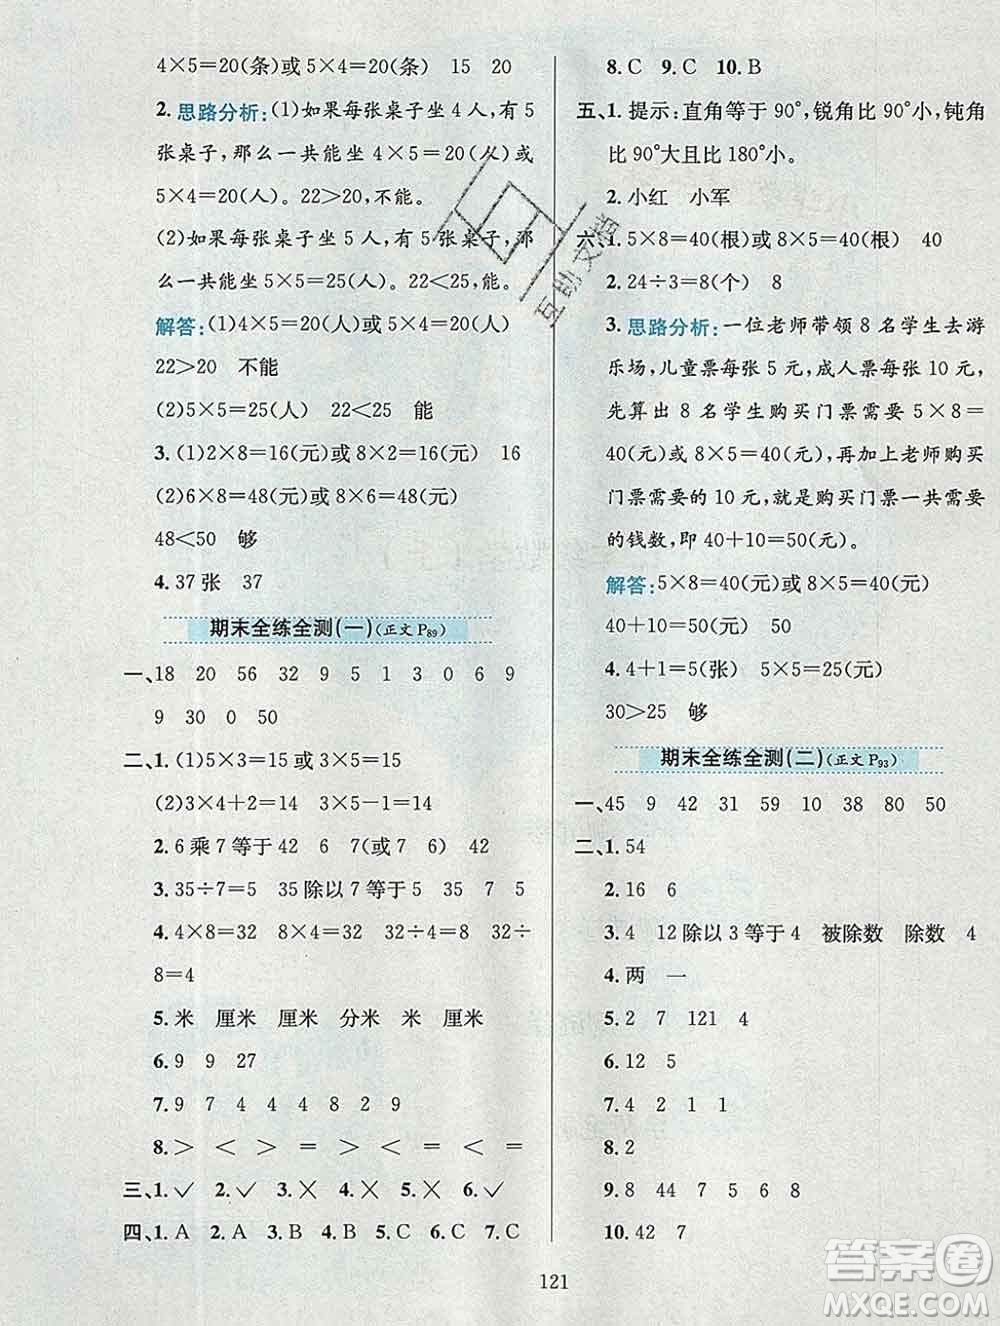 4×5=20(条)或 5×4=20(条)　15　20
2. 思路分析:(1)如果每张桌子坐 4 人,有 5
张桌子,那么一共能坐 4×5=20(人)或
5×4=20(人)。22>20,不能。
(2)如果每张桌子坐 5 人,有 5 张桌子,那
么一共能坐 5×5=25(人)。22<25,能。
解答:(1)4×5=20(人)或 5×4=20(人)
22>20　不能
(2)5×5=25(人)　22<25　能
3. (1)2×8=16(元)或 8×2=16(元)　16
(2)6×8=48(元)或 8×6=48(元)
48<50　够
4. 37 张　37
期末全练全测(一)(正文 P89)
一、18　20　56　32　9　5　1　3　0　6　9
9　30　0　50
二、1. (1)5×3=15 或 3×5=15
(2)3×4+2=14 或 3×5-1=14
2. 6 乘 7 等于 42　6　7(或 7　6)　42
3. 35÷7=5　35 除以 7 等于 5　35　7　5
4. 4×8=32　8×4=32　32÷4=8　32÷
8=4
5. 米　厘米　厘米　分米　米　厘米
6. 9　9　27
7. 9　7　4　4　4　7　9
8. >　<　>　=　=　<　<　=
三、1. ✓　2. ✓　3. ✗　4. ✗　5. ✗　6. ✓
四、1. A　2. A　3. B　4. B　5. C　6. C　7. C
8. C　9. C　10. B
五、1. 提示:直角等于 90°,锐角比 90°小,钝角
比 90°大且比 180°小。
2. 小红　小军
六、1. 5×8=40(根)或 8×5=40(根)　40
2. 24÷3=8(个)　8
3. 思路分析:一位老师带领 8 名学生去游
乐场,儿童票每张 5 元,成人票每张 10 元,
先算出 8 名学生购买门票需要 5×8=
40(元)或 8×5=40(元),再加上老师购买
门票需要的 10 元,就是购买门票一共需要
的钱数,即 40+10=50(元)。
解答:5×8=40(元)或 8×5=40(元)
40+10=50(元)　50
4. 4+1=5(张)　5×5=25(元)
30>25　够
期末全练全测(二)(正文 P93)
一、45　9　42　31　59　10　38　80　50
二、1. 54
2. 16　6
3. 4　12 除以 3 等于 4　被除数　除数　4
4. 两　一
5. 2　7　121　4
6. 12　5
7. 4　2　1　1
8. 2
9. 8　44　7　5　6　8
10. 42　7
121
互助文档
答案圈
MXQE.COM